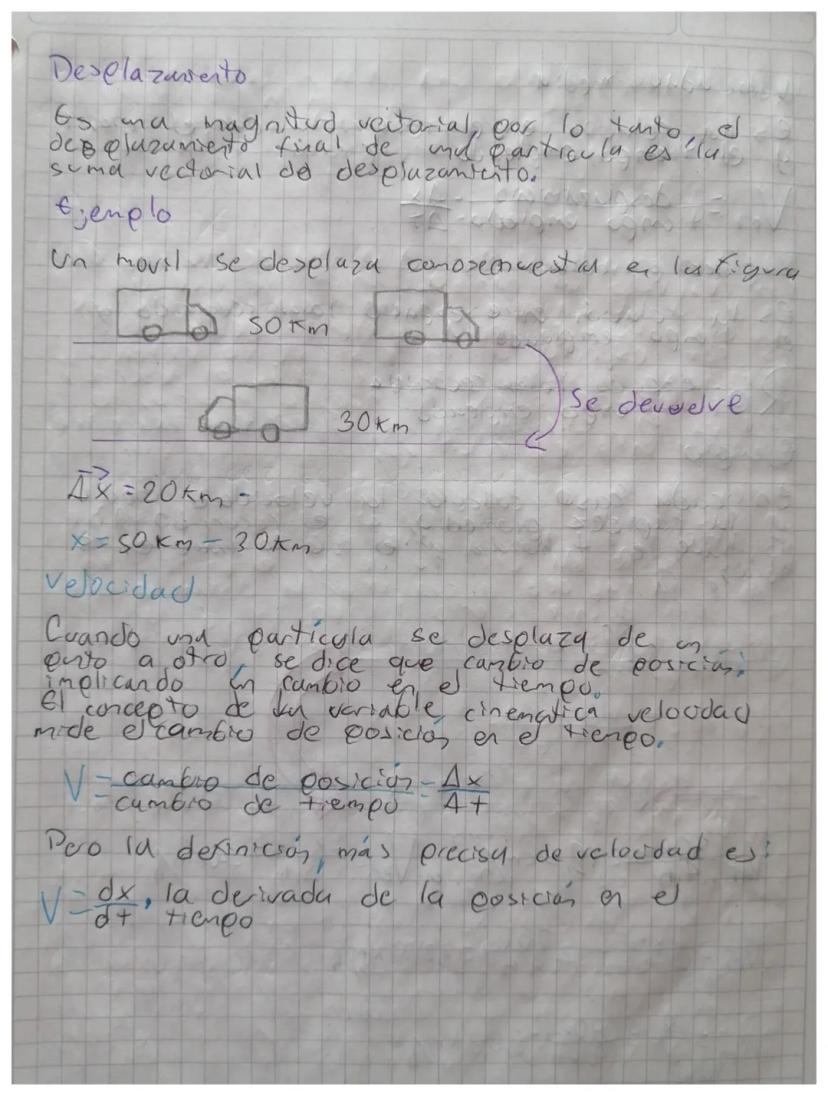 Desplazamiento
Es una magnitud vectorial, por lo tanto, el
desplazamiento final de una particula es la
suma vectorial del desplazamiento.
Ejemplo
Un movil se desplaza como se muestra en la figura
50 Km
Se devuelve
30 Km
Δx⃗ = 20 Km
x = 50 Km - 30 Km
Velocidad
Cuando una partícula se desplaza de un
punto a otro, se dice que cambio de posición;
implicando un cambio en el tiempo.
El concepto de la variable cinemática velocidad
mide el cambio de posición en el tiempo.
V = cambio de posición / cambio de tiempo = Δx / Δt
Pero la definición, más precisa de velocidad es:
V = dx/dt, la derivada de la posición en el
tiempo